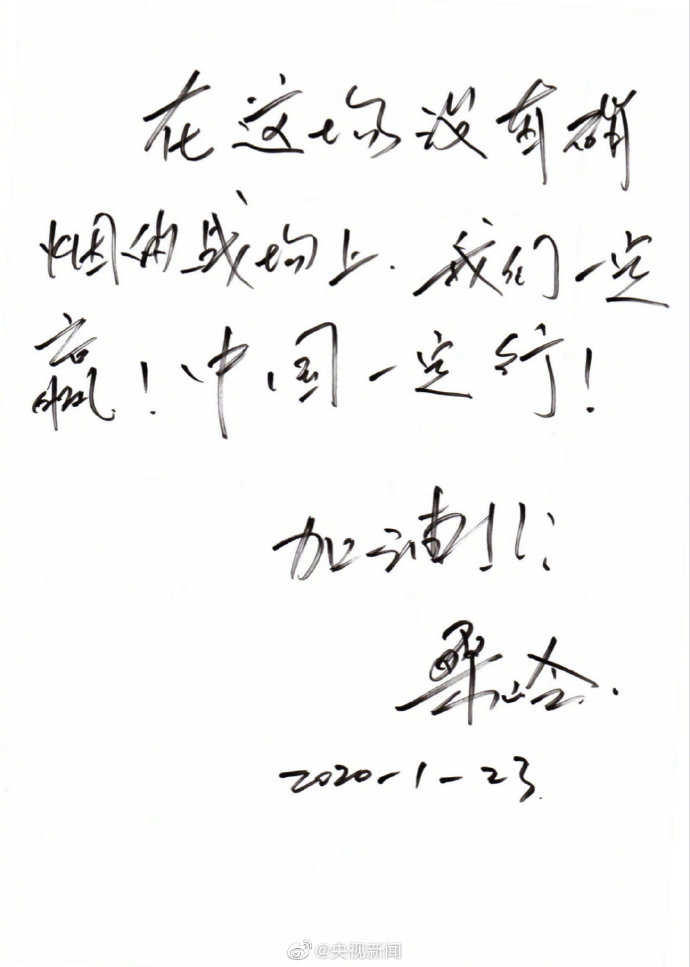 在这场没有硝
烟的战场上，我们一定
赢！中国一定行！
加油!!!
桑岭.
2020-1-23.
@央视新闻